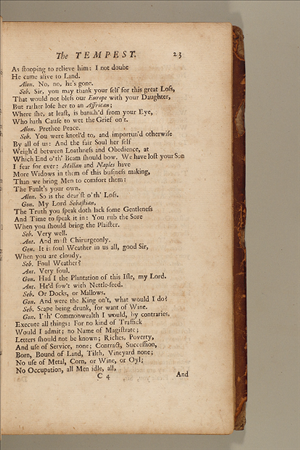 The TEMPEST. 23
As stooping to relieve him: I not doubt
He came alive to Land.
Alon. No, no, he's gone.
Seb. Sir, you may thank your self for this great Loss,
That would not bless our Europe with your Daughter,
But rather lose her to an Affrican;
Where she, at least, is banish'd from your Eye,
Who hath Cause to wet the Grief on't.
Alon. Prethee Peace.
Seb. You were kneel'd to, and importun'd otherwise
By all of us: And the fair Soul her self
Weigh'd between Loathness and Obedience, at
Which End o'th' Beam should bow. We have lost your Son
I fear for ever: Millan and Naples have
More Widows in them of this business making,
Than we bring Men to comfort them:
The Fault's your own.
Alon. So is the dear'st o'th' Loss.
Gon. My Lord Sebastian.
The Truth you speak doth lack some Gentleness
And Time to speak it in: You rub the Sore
When you should bring the Plaister.
Seb. Very well.
Ant. And most Chirurgeonly.
Gon. It is foul Weather in us all, good Sir,
When you are cloudy.
Seb. Foul Weather?
Ant. Very foul.
Gon. Had I the Plantation of this Isle, my Lord.
Ant. He'd sow't with Nettle-seed.
Seb. Or Docks, or Mallows.
Gon. And were the King on't, what would I do?
Seb. Scape being drunk, for want of Wine.
Gon. I'th' Commonwealth I would, by contraries,
Execute all things: For no kind of Traffick
Would I admit; no Name of Magistrate;
Letters should not be known; Riches, Poverty,
And use of Service, none; Contract, Succession,
Born, Bound of Land, Tilth, Vineyard none;
No use of Metal, Corn, or Wine, or Oyl;
No Occupation, all Men idle, all,
C 4 And